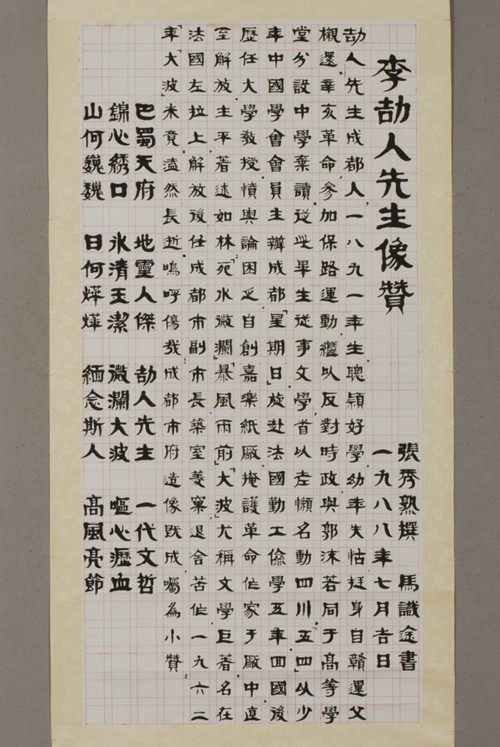 李劼人先生像贊
張秀熟撰 馬識途書
一九八八年七月吉日
劼人先生成都人一八九一年生聰穎好學幼年失怙挺身自贛運父
櫬還辛亥革命參加保路運動繼以反對時政與郭沫若同于高等學
堂分設中學棄讀從此畢生從事文學首以老懶名動四川「五四」从少
年中國學會會員主辦成都「星期日」旋赴法國勤工儉學五年回國後
歷任大學教授憤輿論困乏自創嘉樂紙廠掩護革命作家于廠中直
至解放生平著述如林「死水微瀾」「暴風雨前」「大波」尤稱文學巨著名在
法國左拉上解放後任成都市副市長築室菱窠退舍苦作一九六二
年「大波」未竟溘然長逝嗚呼傷哉成都市府造像既成囑為小贊
巴蜀天府 地靈人傑 劼人先生 一代文哲
錦心綉口 冰清玉潔 微瀾大波 嘔心瀝血
山何巍巍 日何燁燁 緬念斯人 高風亮節